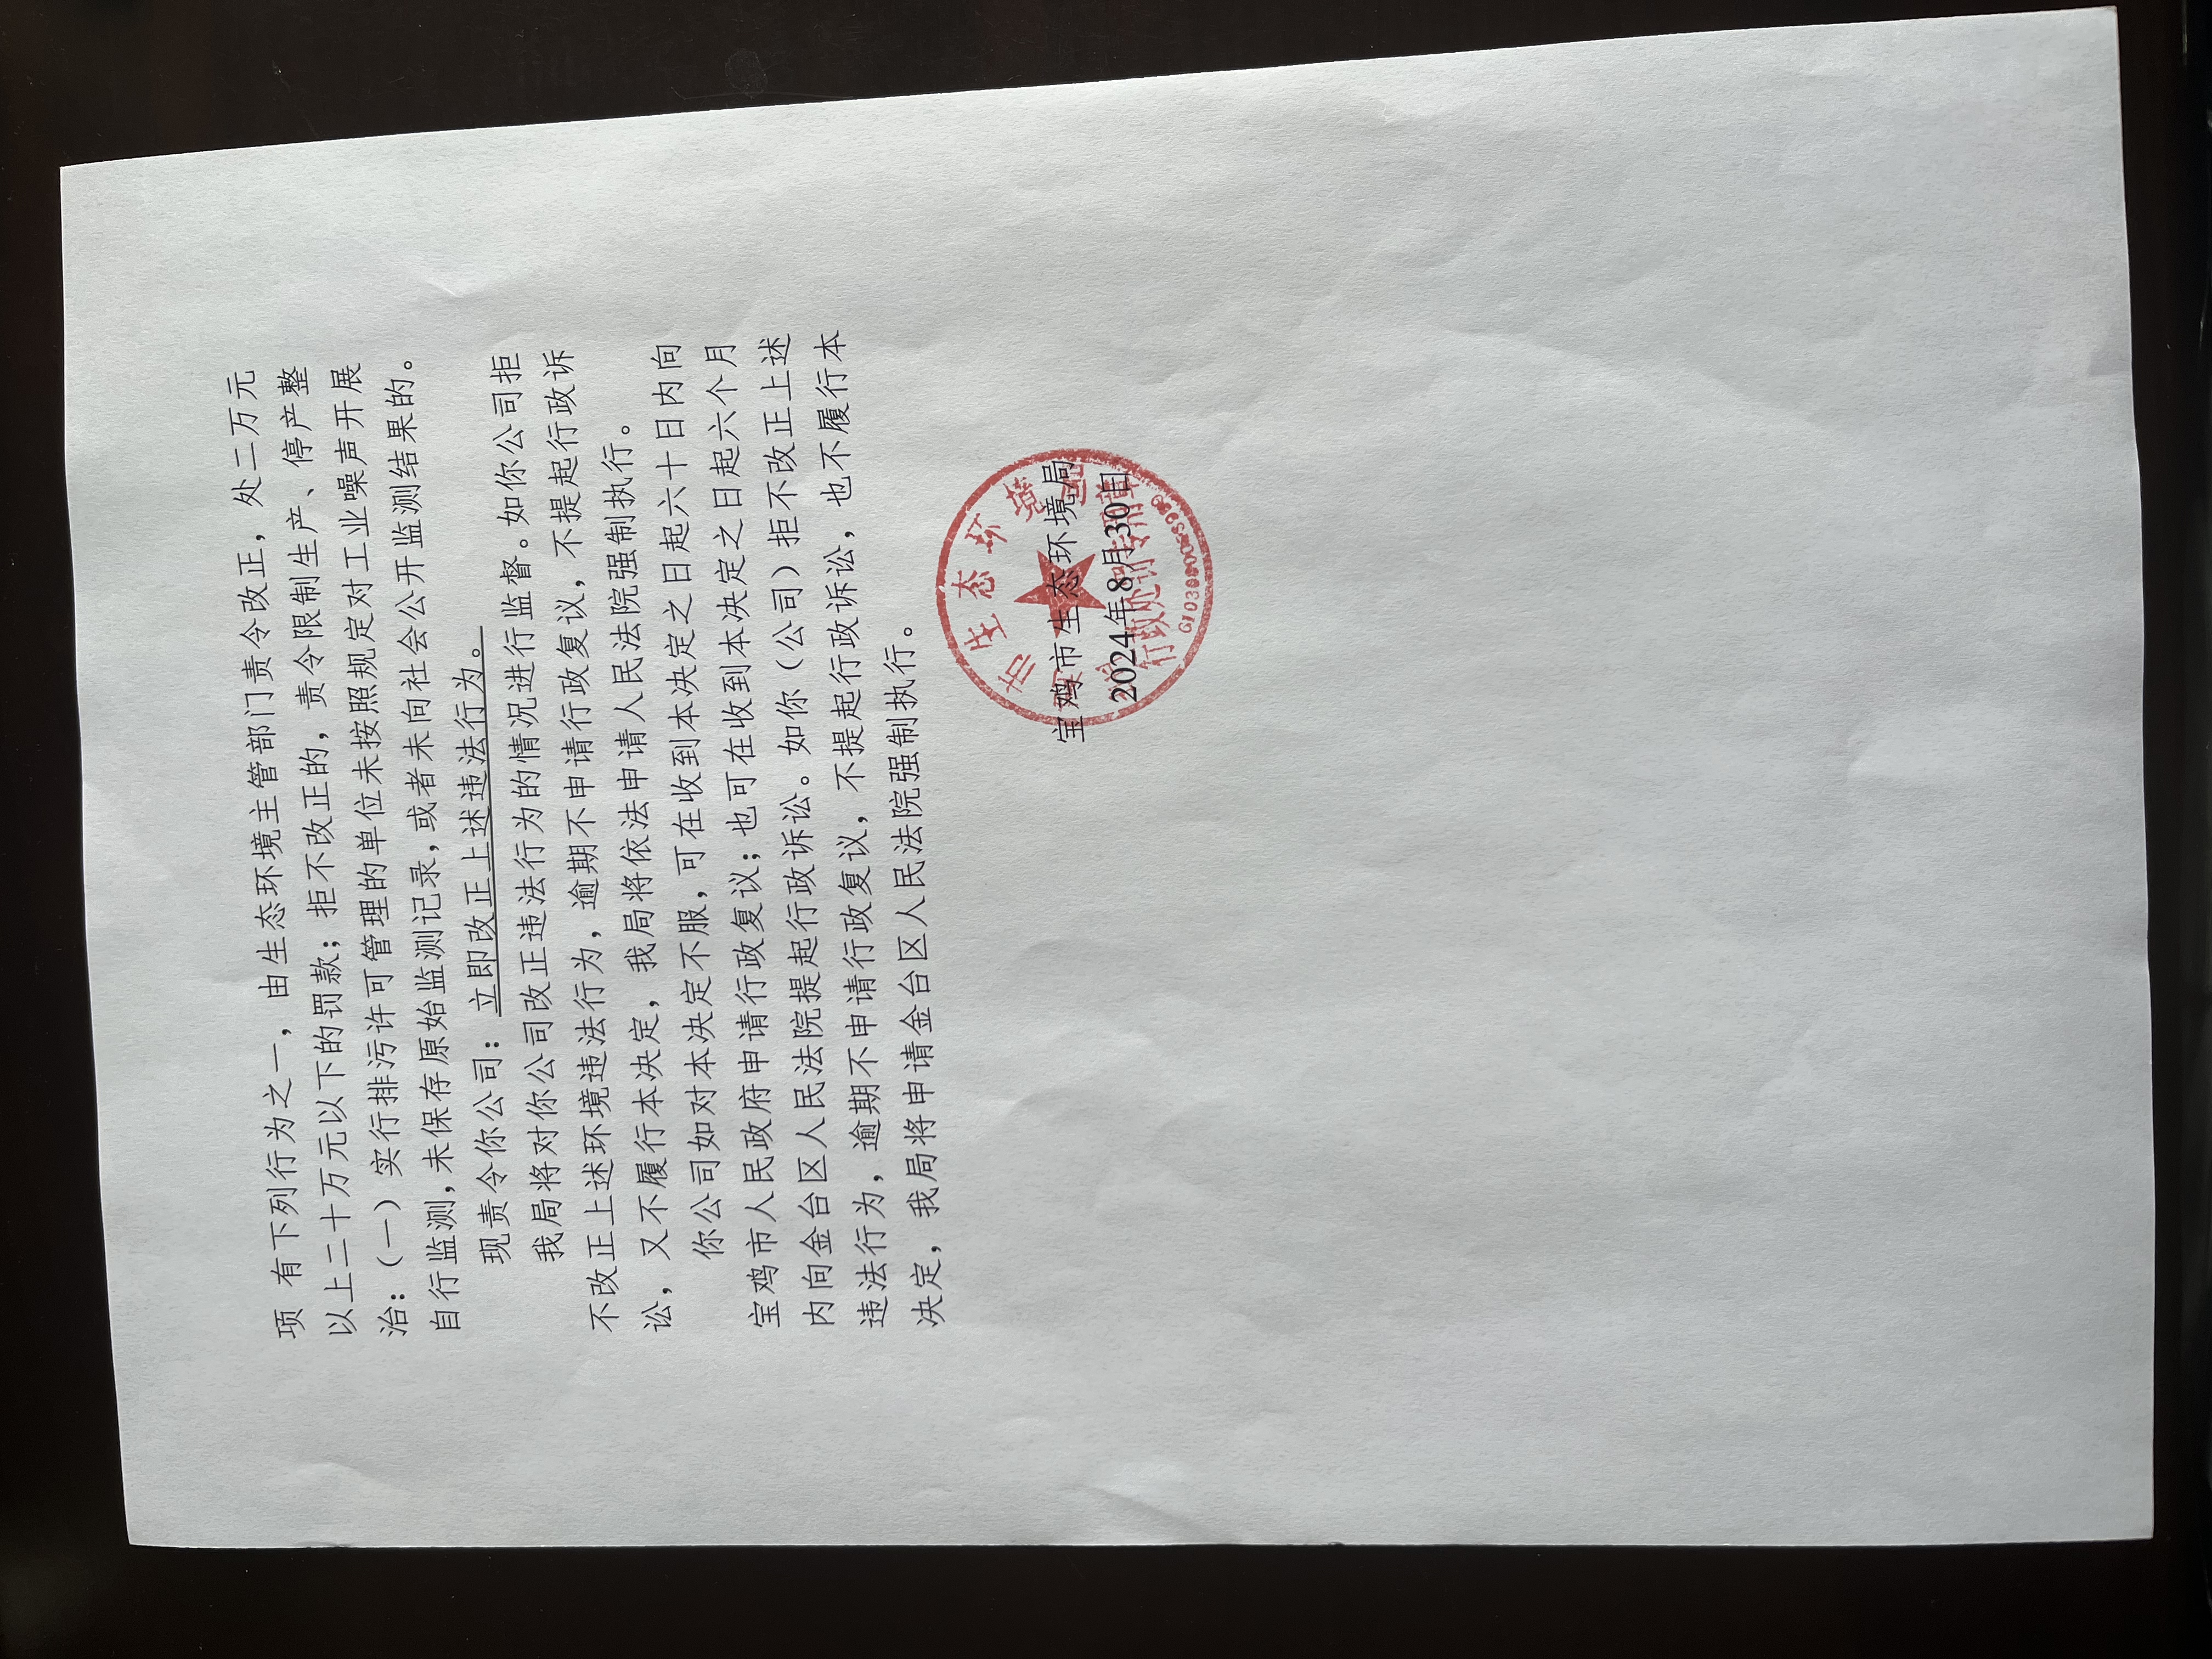 项 有下列行为之一，由生态环境主管部门责令改正，处二万元
以上二十万元以下的罚款；拒不改正的，责令限制生产、停产整
治：（一）实行排污许可管理的单位未按照规定对工业噪声开展
自行监测,未保存原始监测记录,或者未向社会公开监测结果的。
现责令你公司：立即改正上述违法行为。
我局将对你公司改正违法行为的情况进行监督。如你公司拒
不改正上述环境违法行为，逾期不申请行政复议，不提起行政诉
讼，又不履行本决定，我局将依法申请人民法院强制执行。
你公司如对本决定不服，可在收到本决定之日起六十日内向
宝鸡市人民政府申请行政复议；也可在收到本决定之日起六个月
内向金台区人民法院提起行政诉讼。如你（公司）拒不改正上述
违法行为，逾期不申请行政复议，不提起行政诉讼，也不履行本
决定，我局将申请金台区人民法院强制执行。
宝鸡市生态环境局
2024年8月30日
市生态环境
行政处罚专用章